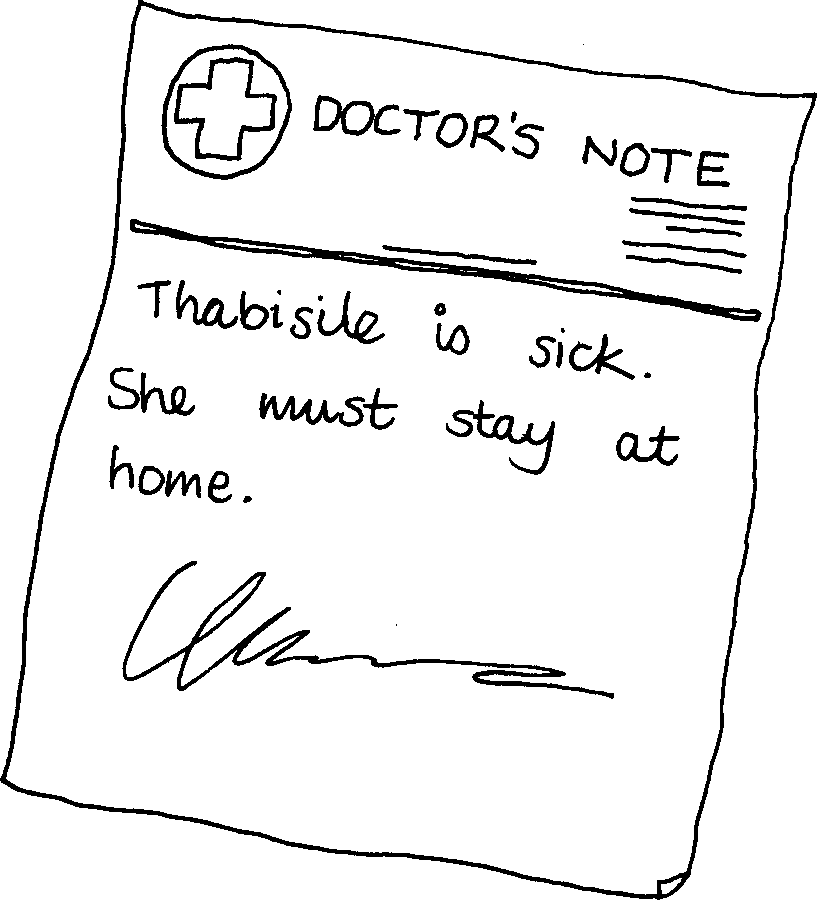 DOCTOR'S NOTE
Thabisile is sick.
She must stay at
home.